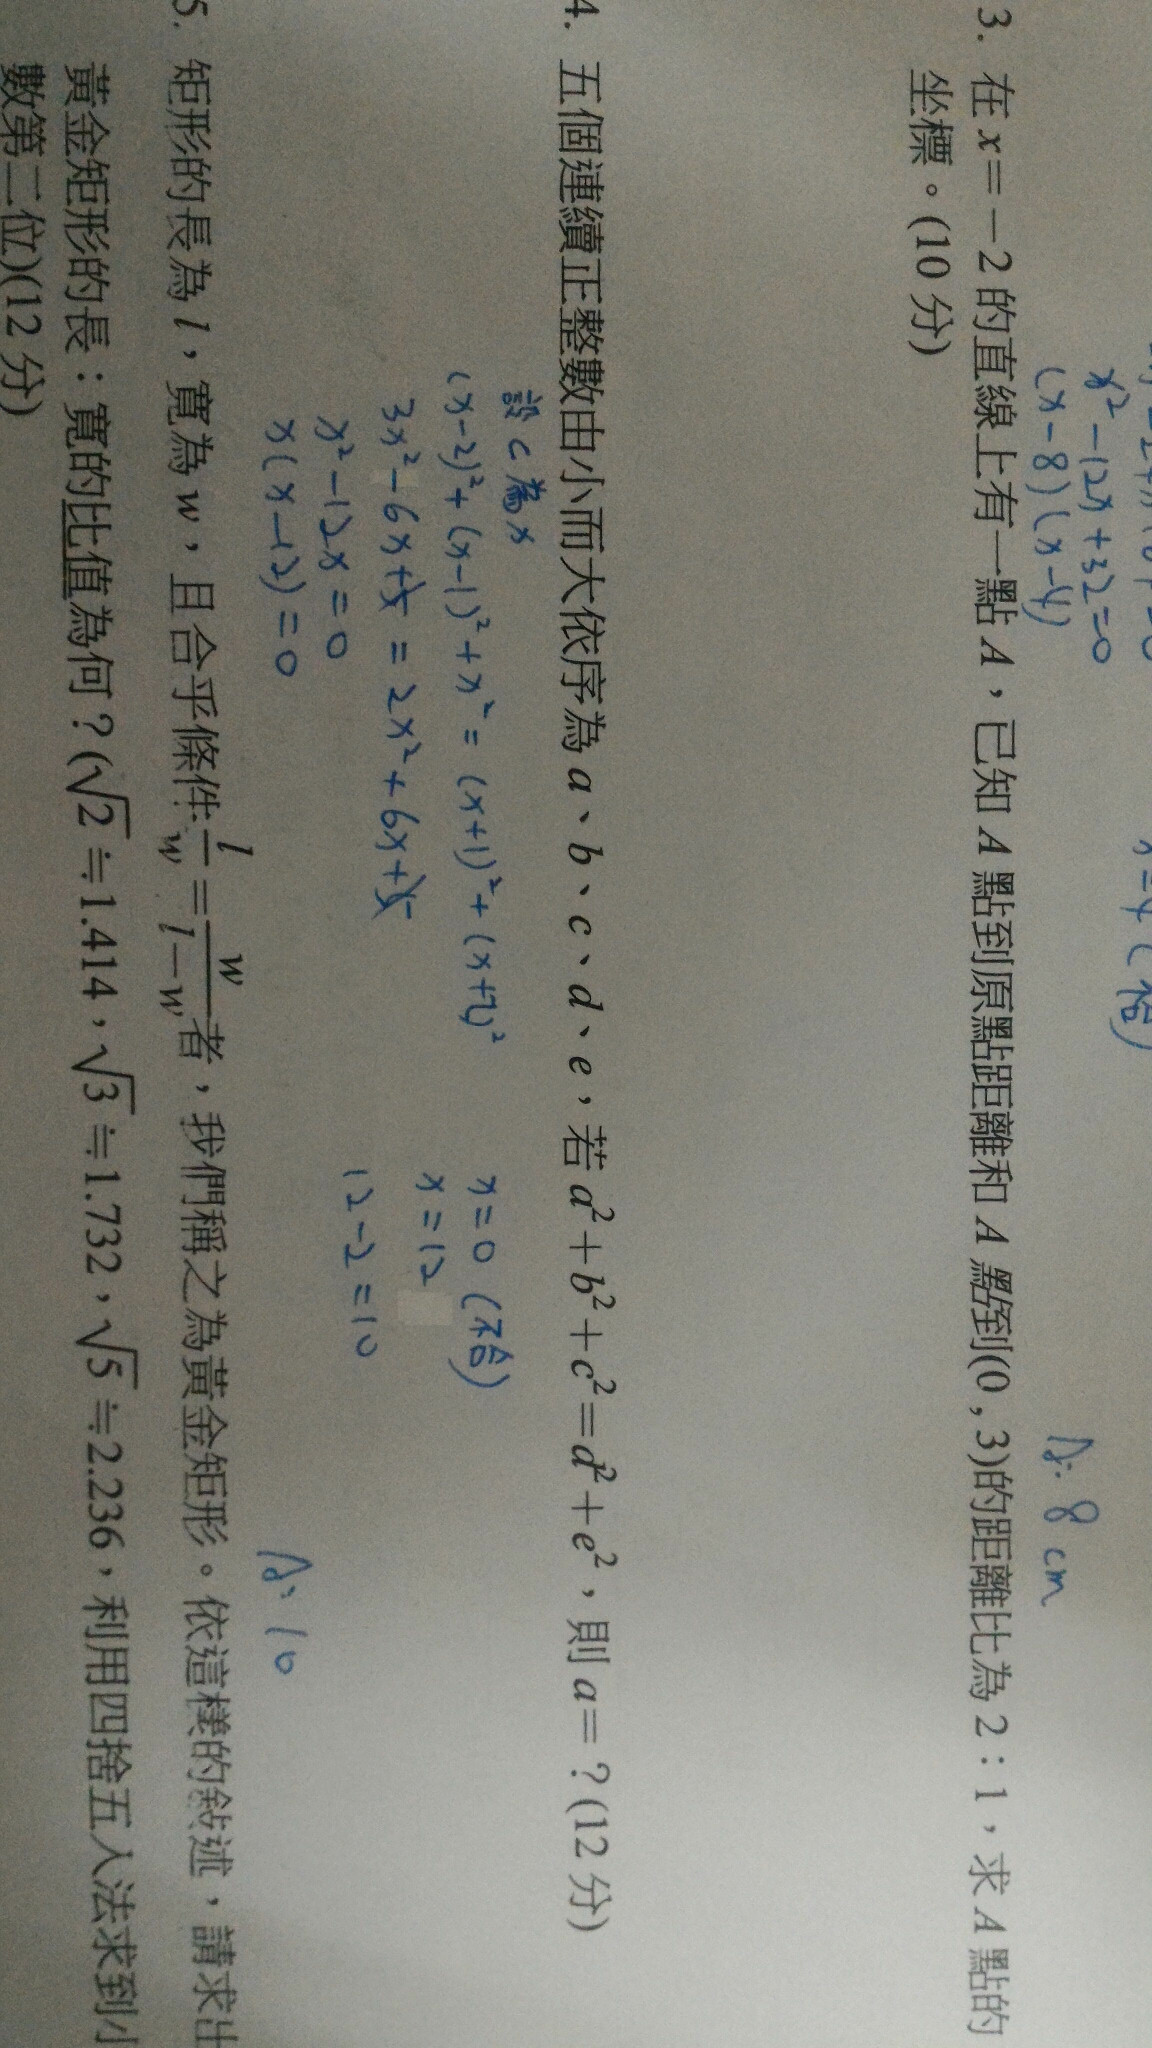 x²-12x+32=0
(x-8)(x-4)
x=4(不合)
A: 8 cm
3. 在 x=-2 的直線上有一點 A，已知 A 點到原點距離和 A 點到(0,3)的距離比為 2：1，求 A 點的
坐標。(10 分)
4. 五個連續正整數由小而大依序為 a、b、c、d、e，若 a²+b²+c²=d²+e²，則 a=？(12 分)
設 c 為 x
(x-2)²+(x-1)²+x²=(x+1)²+(x+2)²
3x²-6x+5=2x²+6x+5
x²-12x=0
x(x-12)=0
x=0(不合)
x=12
12-2=10
A: 10
5. 矩形的長為 l，寬為 w，且合乎條件：l/w=w/(l-w)者，我們稱之為黃金矩形。依這樣的敘述，請求出
黃金矩形的長：寬的比值為何？(√2≒1.414，√3≒1.732，√5≒2.236，利用四捨五入法求到小
數第二位)(12 分)